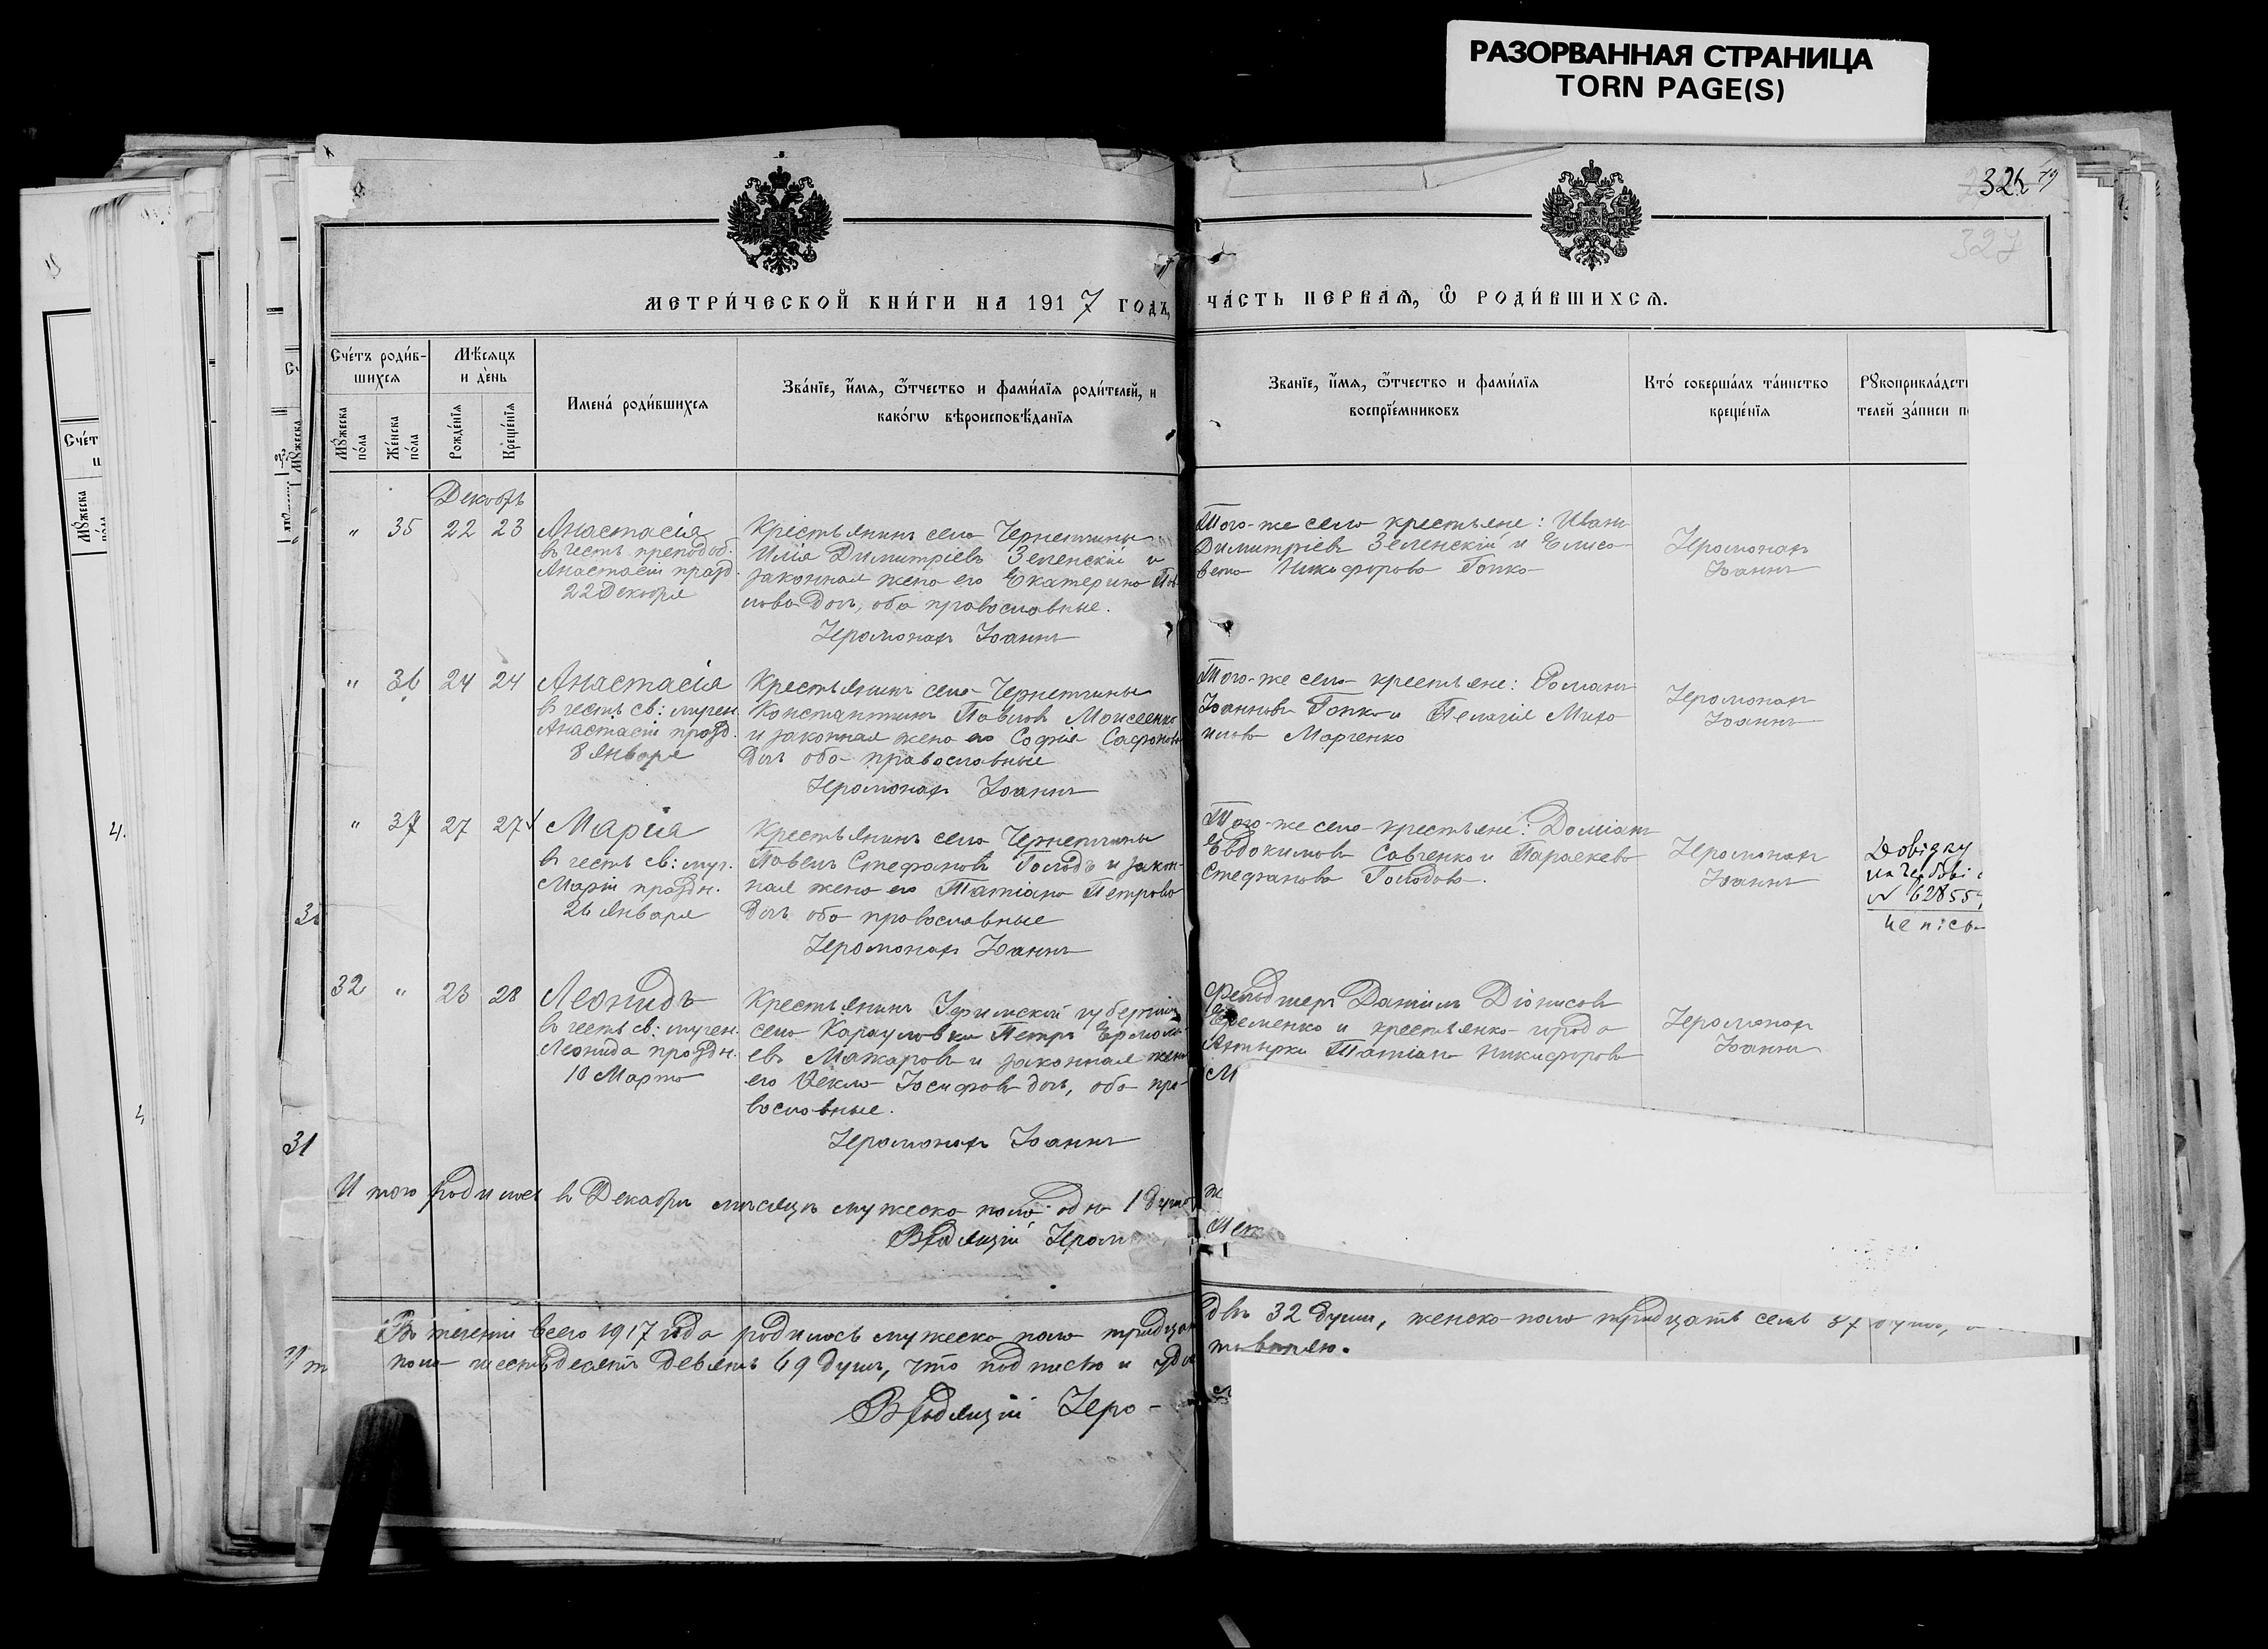 РАЗОРВАННАЯ СТРАНИЦА
TORN PAGE(S)
326
79
327
МЕТРИ́ЧЕСКОЙ КНИ́ГИ НА 1917 ГОДЪ,
ЧА́СТЬ ПЕРВАЯ, Ѡ РОДИ́ВШИХСЯ.
Сче́тъ роди́в-
шихся
Мѣ́сяцъ
и де́нь
Мꙋжеска по́ла
Же́нска по́ла
Рожде́нїя
Креще́нїя
Имена́ роди́вшихся
Зва́нїе, и́мя, ѻ́тчество и фами́лїя роди́телей, и
како́гѡ вѣроисповѣ́данїя
Званїе, и́мя, ѻ́тчество и фами́лїя
воспрїе́мниковъ
Кто́ соверша́лъ та́инство
креще́нїя
Рꙋкоприкла́дст
телей за́писи п
Декабрь
" 35 22 23 Анастасія
въ честь преподоб.
Анастасіи празд.
22 Декабря
Крестьянинъ села Чернетчины
Илія Димитріевъ Зеленскій и
законная жена его Екатерина Пав
лова доч, оба православные.
Іеромонах Іоаннъ
Того-же села крестьяне: Иванъ
Димитріевъ Зеленскій и Елиса-
вета Никифорова Попко
Іеромонахъ
Іоаннъ
" 36 24 24 Анастасія
въ честь св: мучен.
Анастасіи празд.
8 Января
Крестьянинъ села Чернетчины
Константинъ Павловъ Моисеенко
и законная жена его Софія Сафонова
доч. оба православные
Іеромонах Іоаннъ
Того-же села крестьяне: Романъ
Іоанновъ Попко и Пелагія Миха
илова Марченко
Іеромонахъ
Іоаннъ
" 37 27 27 Марія
въ честь св: муч.
Маріи праздн.
26 Января
Крестьянинъ села Чернетчины
Павелъ Стефановъ Голодъ и закон-
ная жена его Татіана Петрова
доч. оба православные
Іеромонах Іоаннъ
Того-же села крестьяне: Доміанъ
Евдокимовъ Савченко и Параскева
Стефанова Голодова.
Іеромонахъ
Іоаннъ
Довідку
N 62855
32 " 23 28 Леонидъ
въ честь св: мучен.
Леонида праздн.
10 Марта
Крестьянинъ Уфимской губерніи
села Карауловки Петръ Ермола-
евъ Макаровъ и законная жена
его Ѳекла Іосифова доч, оба пра-
вославные.
Іеромонах Іоаннъ
Фельдшеръ Даніилъ Діонисовъ
Еременко и крестьянка города
Ахтырки Татіана Никифорова
М
Іеромонахъ
Іоаннъ
Итого родилось въ Декабрѣ мѣсяцѣ мужеска пола одна 1 душа
Врѣдящій Іером
В теченіи всего 1917 года родилось мужеска пола тридцат
два 32 души, женска пола тридцать семь 37 душъ,
пола шестьдесятъ девять 69 душъ, что подписью и удос
товѣряю.
Врѣдящій Іеро-
31
4.